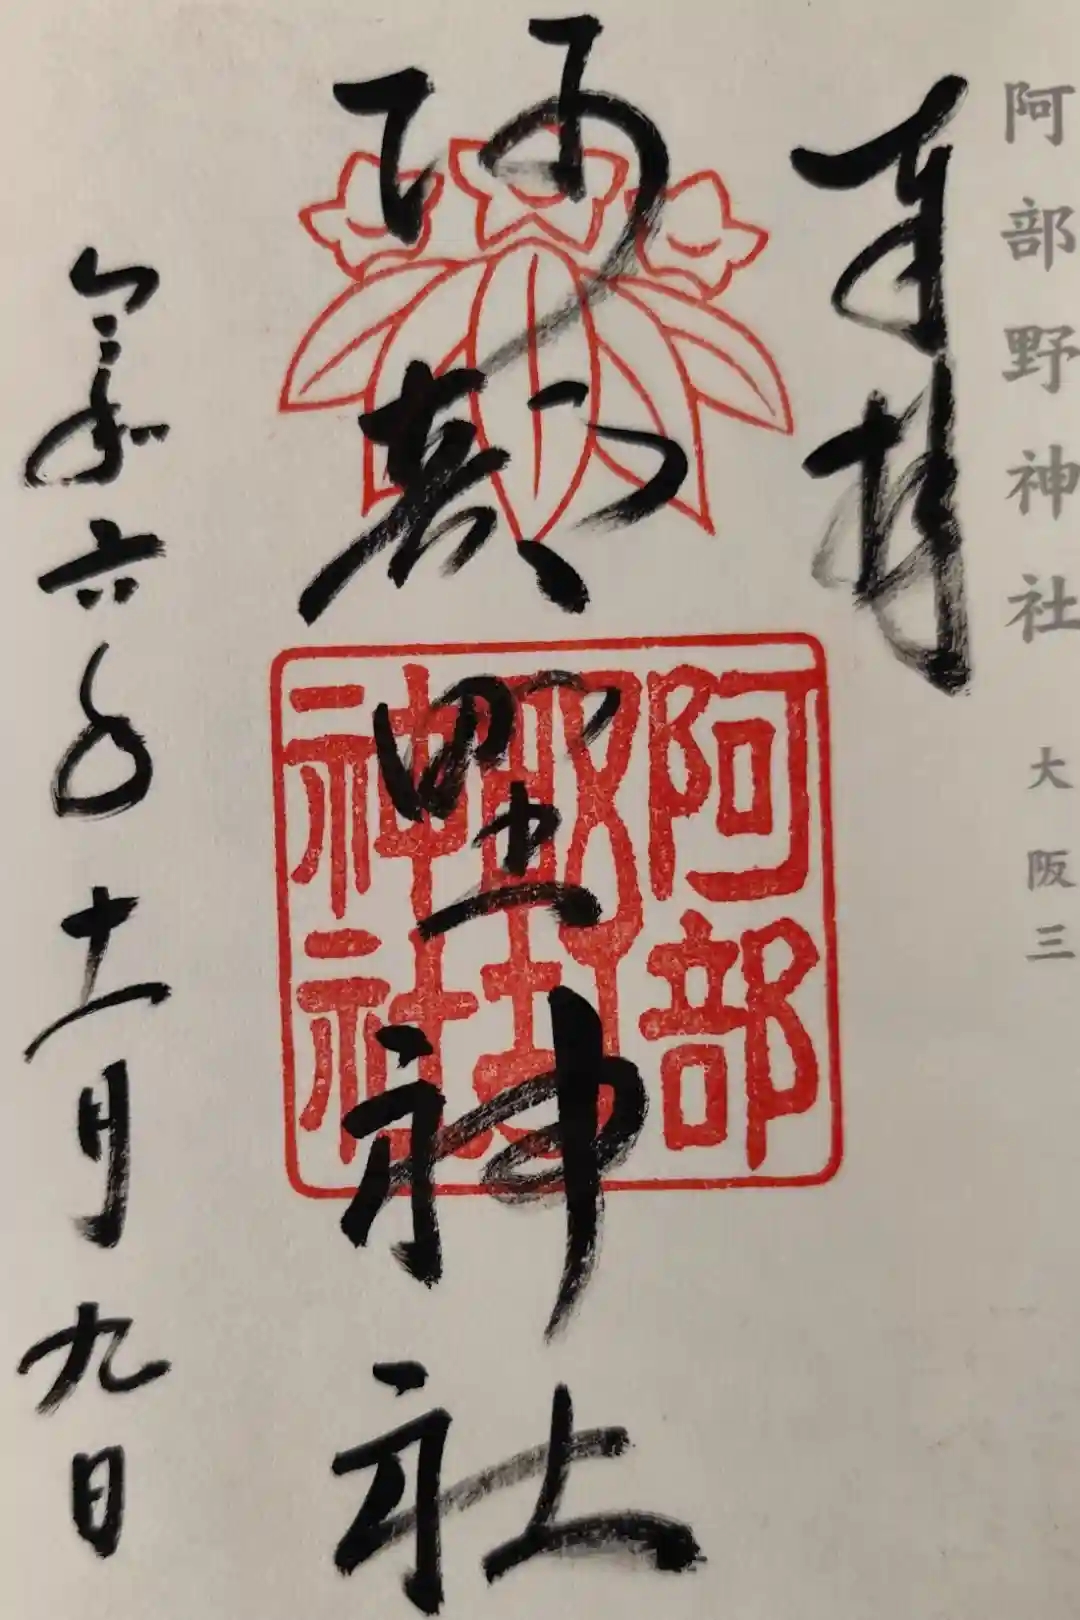 阿部野神社 大阪三
奉拝
阿部野神社
阿部
野
神社
令和六年十一月九日